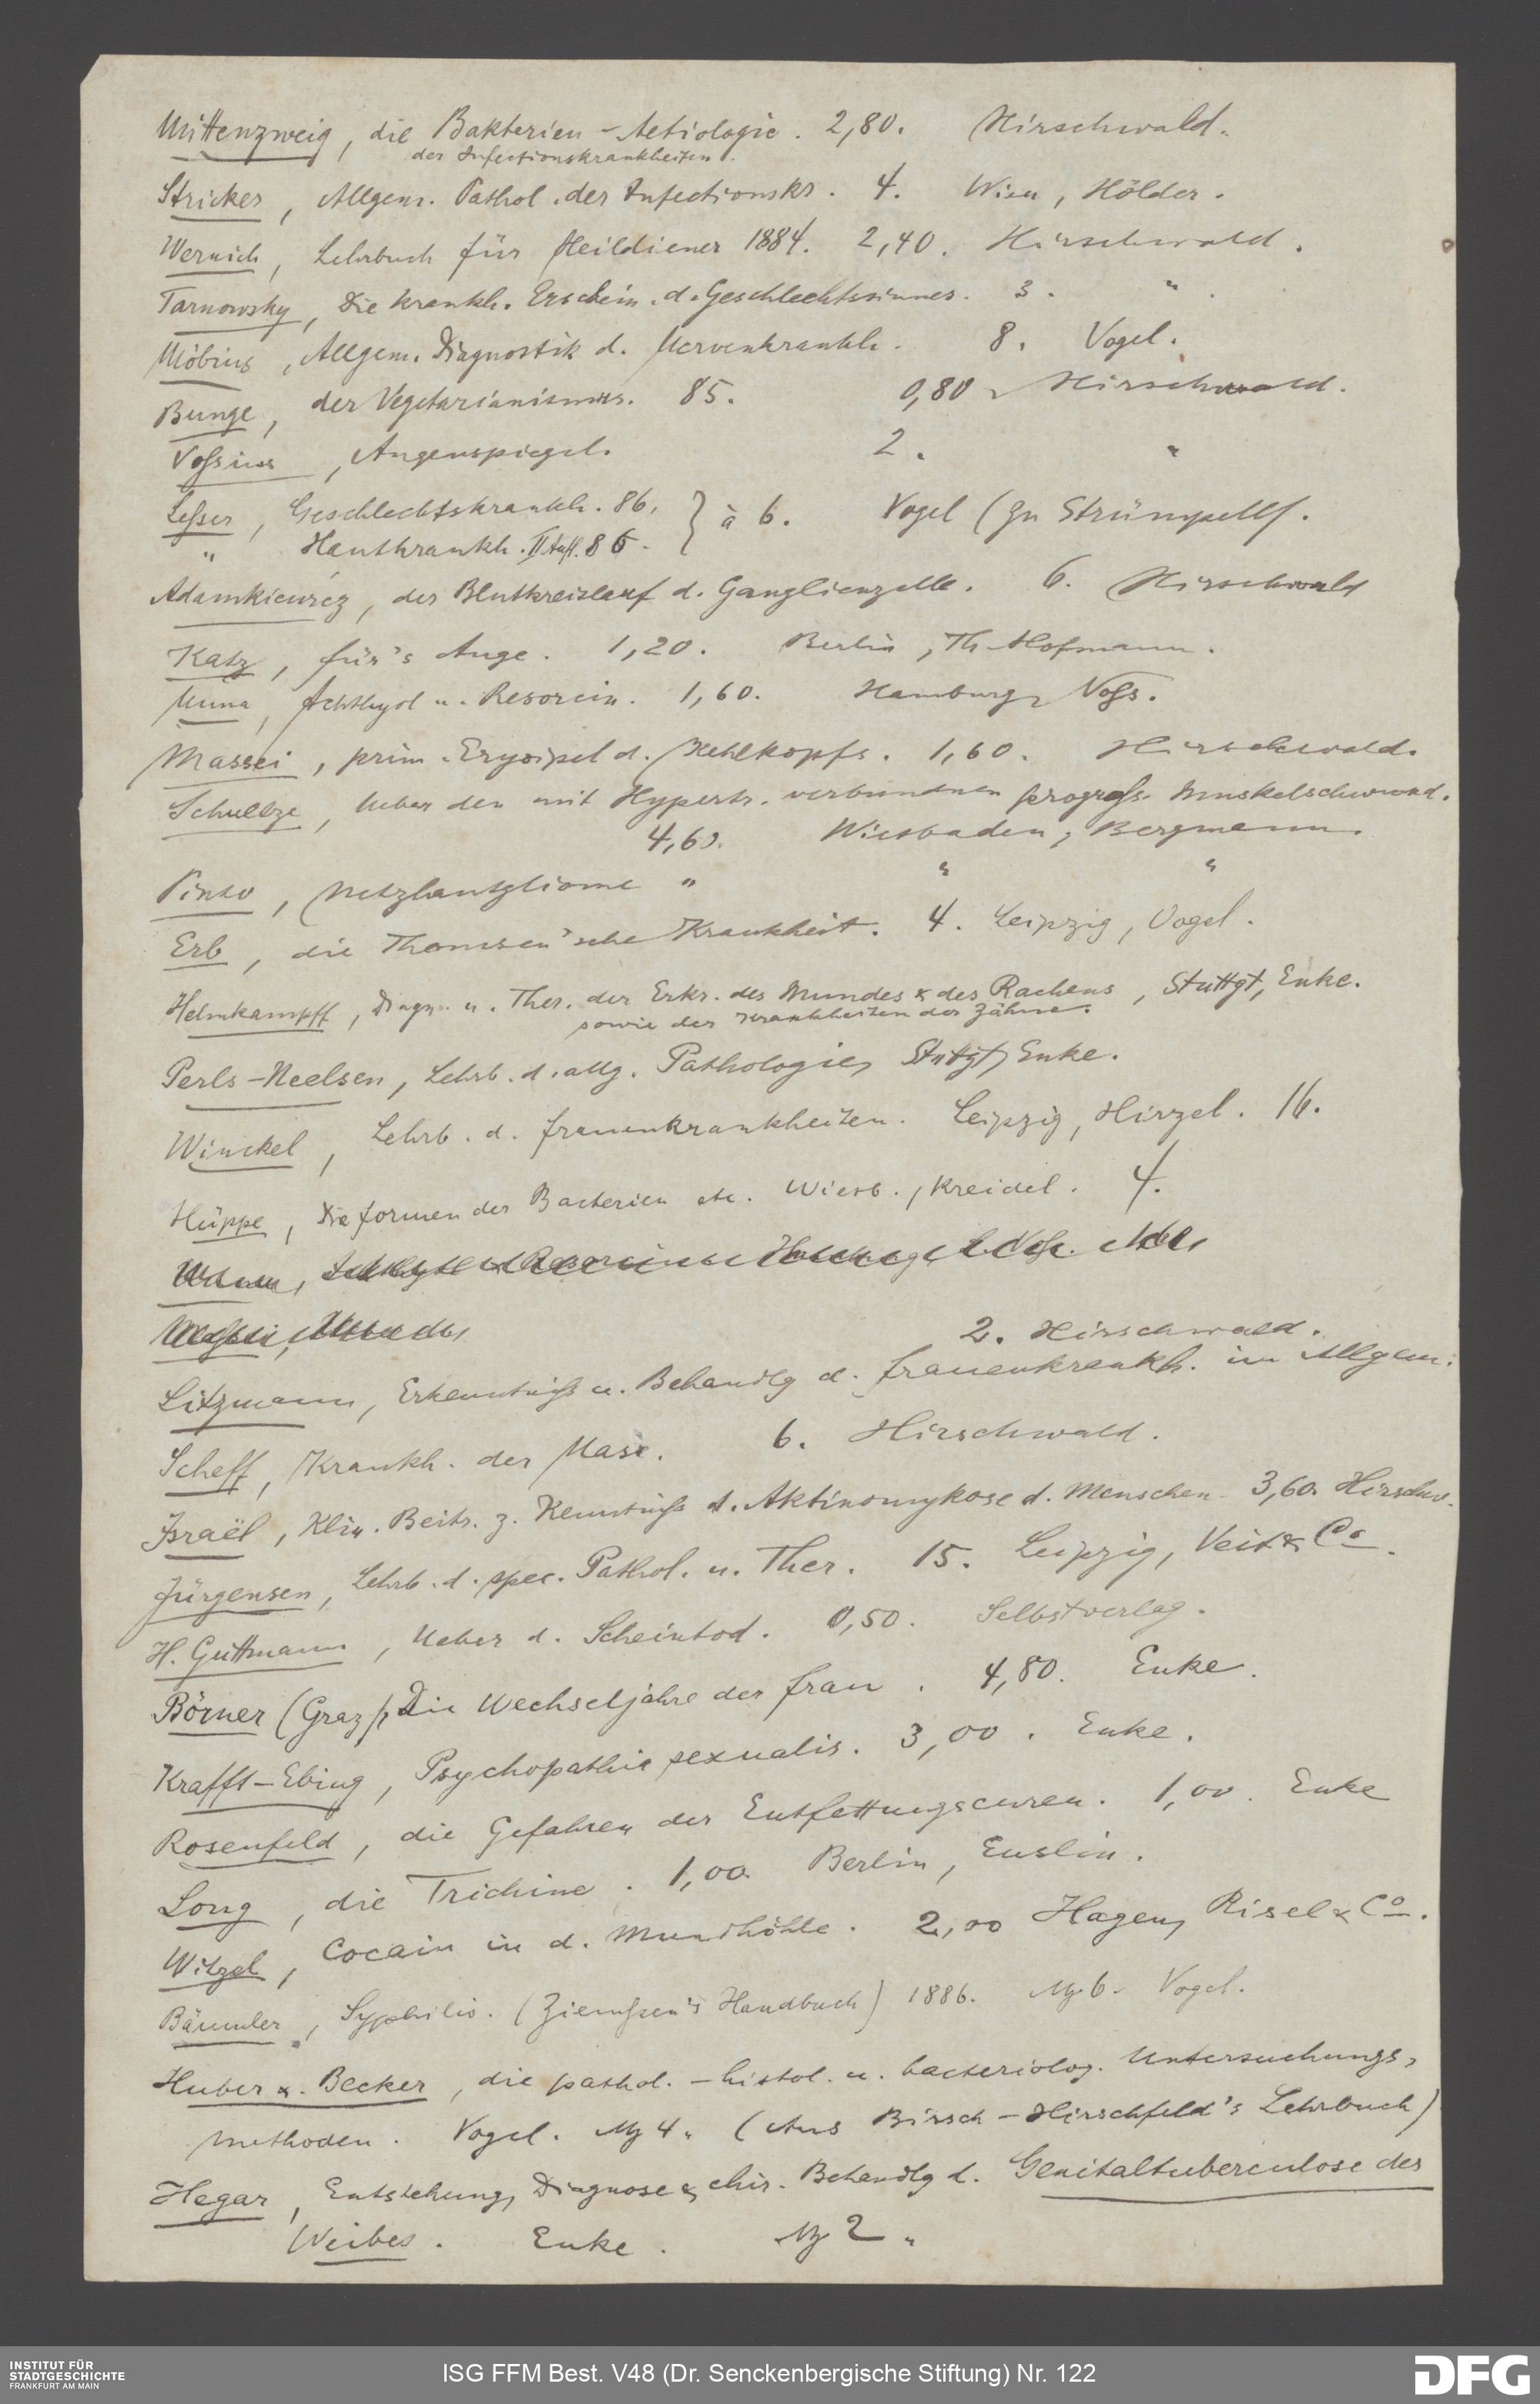 Mittenzweig, die Bakterien-Aetiologie. 2,80. Hirschwald.
der Infectionskrankheiten.
Stricker, Allgem. Pathol. der Infectionskr. 4. Wien, Hölder.
Wernich, Lehrbuch für Heildiener 1884. 2,40. Hirschwald.
Tarnowsky, Die krankh. Erschein. d. Geschlechtssinnes. 3. "
Möbius, Allgem. Diagnostik d. Nervenkrankh. 8. Vogel.
Bunge, der Vegetarianismus. 85. 0,80. Hirschwald.
Voſsius, Augenspiegel. 2. "
Leſser, Geschlechtskrankh. 86. } à 6. Vogel (zu Strümpell).
" Hautkrankh. II Aufl. 86.
Adamkiewicz, der Blutkreislauf d. Ganglienzelle. 6. Hirschwald
Katz, für's Auge. 1,20. Berlin, Th. Hofmann.
Unna, Ichthyol u. Resorcin. 1,60. Hamburg, Voſs.
Massei, prim. Erysipel d. Kehlkopfs. 1,60. Hirschwald.
Schultze, Ueber den mit Hypertr. verbundnen progreſs. Muskelschwund.
4,60. Wiesbaden, Bergmann.
Pinto, Netzhautgliome " " "
Erb, die Thomsen'sche Krankheit. 4. Leipzig, Vogel.
Helmkampff, Diagn. u. Ther. der Erkr. des Mundes & des Rachens, Stuttgt, Enke.
sowie der Krankheiten der Zähne.
Perls-Neelsen, Lehrb. d. allg. Pathologie, Stuttgt, Enke.
Winckel, Lehrb. d. Frauenkrankheiten. Leipzig, Hirzel. 16.
Hüppe, Die Formen der Bacterien etc. Wiesb., Kreidel. 4.
2. Hirschwald.
Litzmann, Erkenntniſs u. Behandlg d. Frauenkrankh. im Allgem.
Scheff, Krankh. der Nase. 6. Hirschwald.
Israël, Klin. Beitr. z. Kenntniſs d. Aktinomykose d. Menschen. 3,60. Hirschw.
Jürgensen, Lehrb. d. spec. Pathol. u. Ther. 15. Leipzig, Veit & Co.
H. Guttmann, Ueber d. Scheintod. 0,50. Selbstverlag.
Börner (Graz), Die Wechseljahre der Frau. 4,80. Enke.
Krafft-Ebing, Psychopathia sexualis. 3,00. Enke.
Rosenfeld, die Gefahren der Entfettungscuren. 1,00. Enke
Long, die Trichine. 1,00. Berlin, Enslin.
Witzel, Cocain in d. Mundhöhle. 2,00 Hagen, Risel & Co.
Bäumler, Syphilis. (Ziemſsen's Handbuch) 1886. M 6. Vogel.
Huber & Becker, die pathol.-histol. u. bacteriolog. Untersuchungs-
methoden. Vogel. M 4. (Aus Birsch-Hirschfeld's Lehrbuch)
Hegar, Entstehung, Diagnose & chir. Behandlg d. Genitaltuberculose des
Weibes. Enke. M 2.
INSTITUT FÜR
STADTGESCHICHTE
FRANKFURT AM MAIN
ISG FFM Best. V48 (Dr. Senckenbergische Stiftung) Nr. 122
DFG